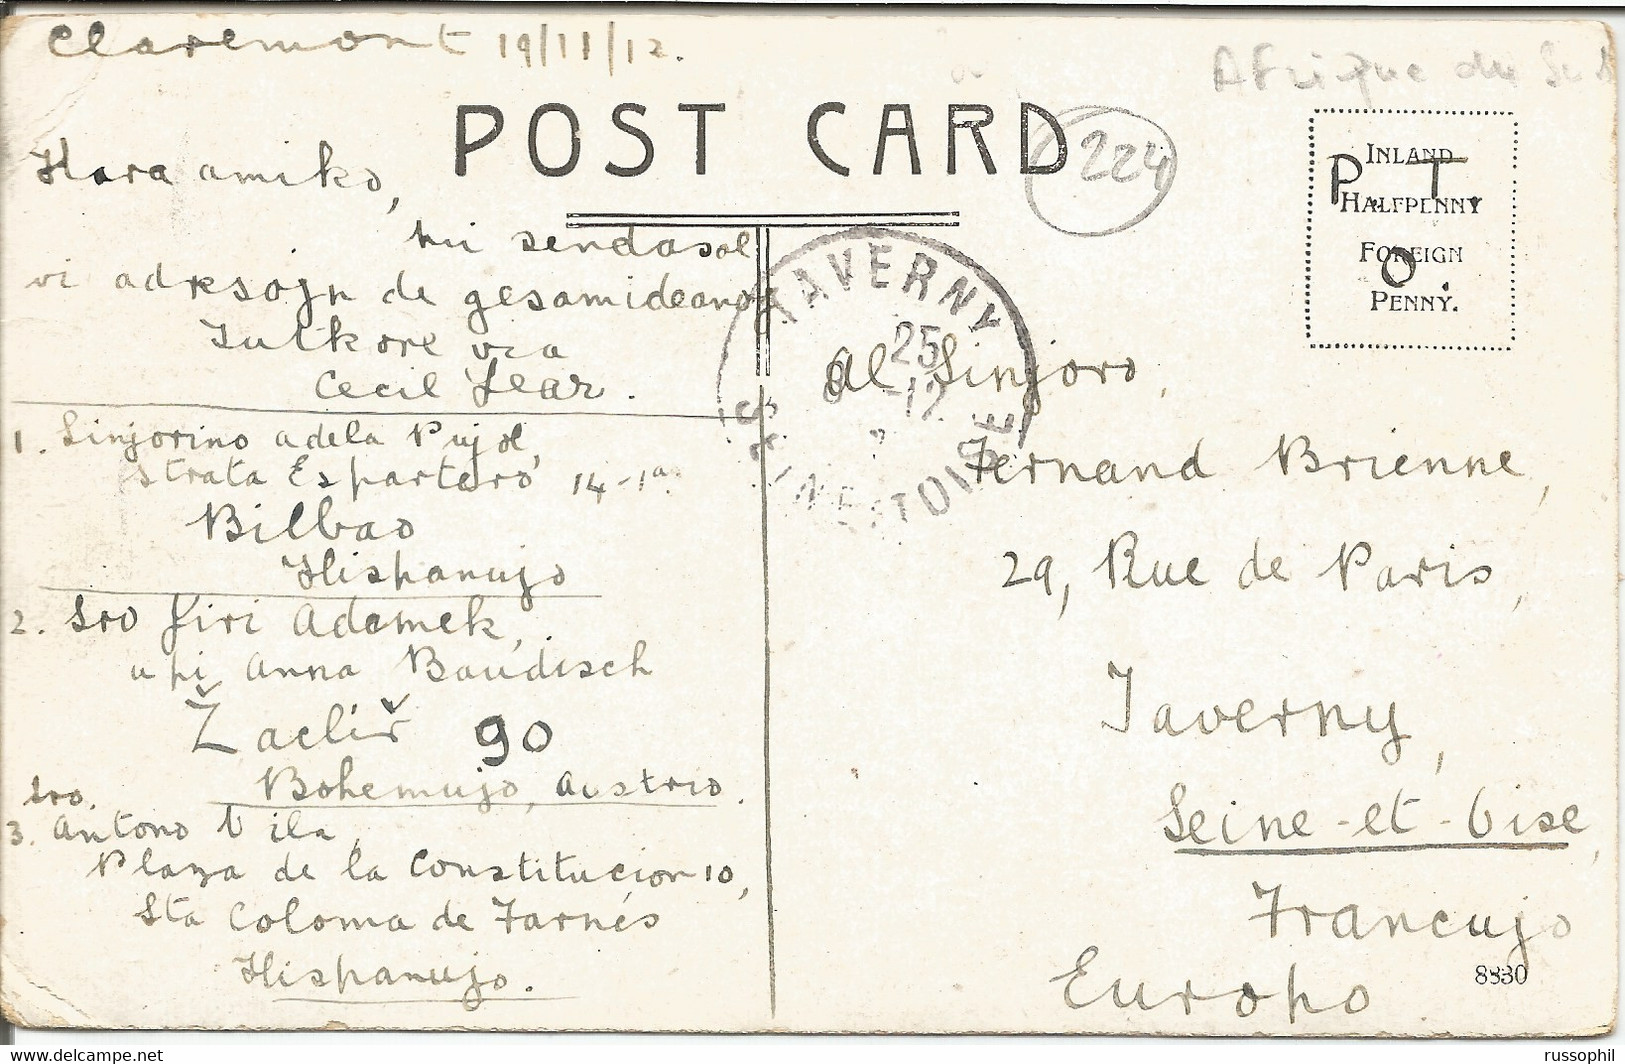 Claremont 19/11/12.
Afrique du Sud
POST CARD
224
INLAND
HALFPENNY
FOREIGN
PENNY.
P.T.
O.
Kara amiko,
mi sendas al
vi adresojn de gesamideanoj
Tutkore via
Cecil Lear.
1. Sinjorino Adela Pujol,
strata Espartero, 14-1a.
Bilbao
Hispanujo
2. Sro Jiri Adamek,
Anna Baudisch
Žacliř 90
Bohemujo, Austrio.
Sro.
3. Antono Vila,
Plaza de la Constitucion 10,
Sta Coloma de Farnés
Hispanujo.
TAVERNY
25
-12
SEINE-ET-OISE
Al Sinjoro,
Fernand Brienne,
29, Rue de Paris,
Taverny,
Seine-et-Oise,
Francujo
Europo
8830
www.delcampe.net
russophil